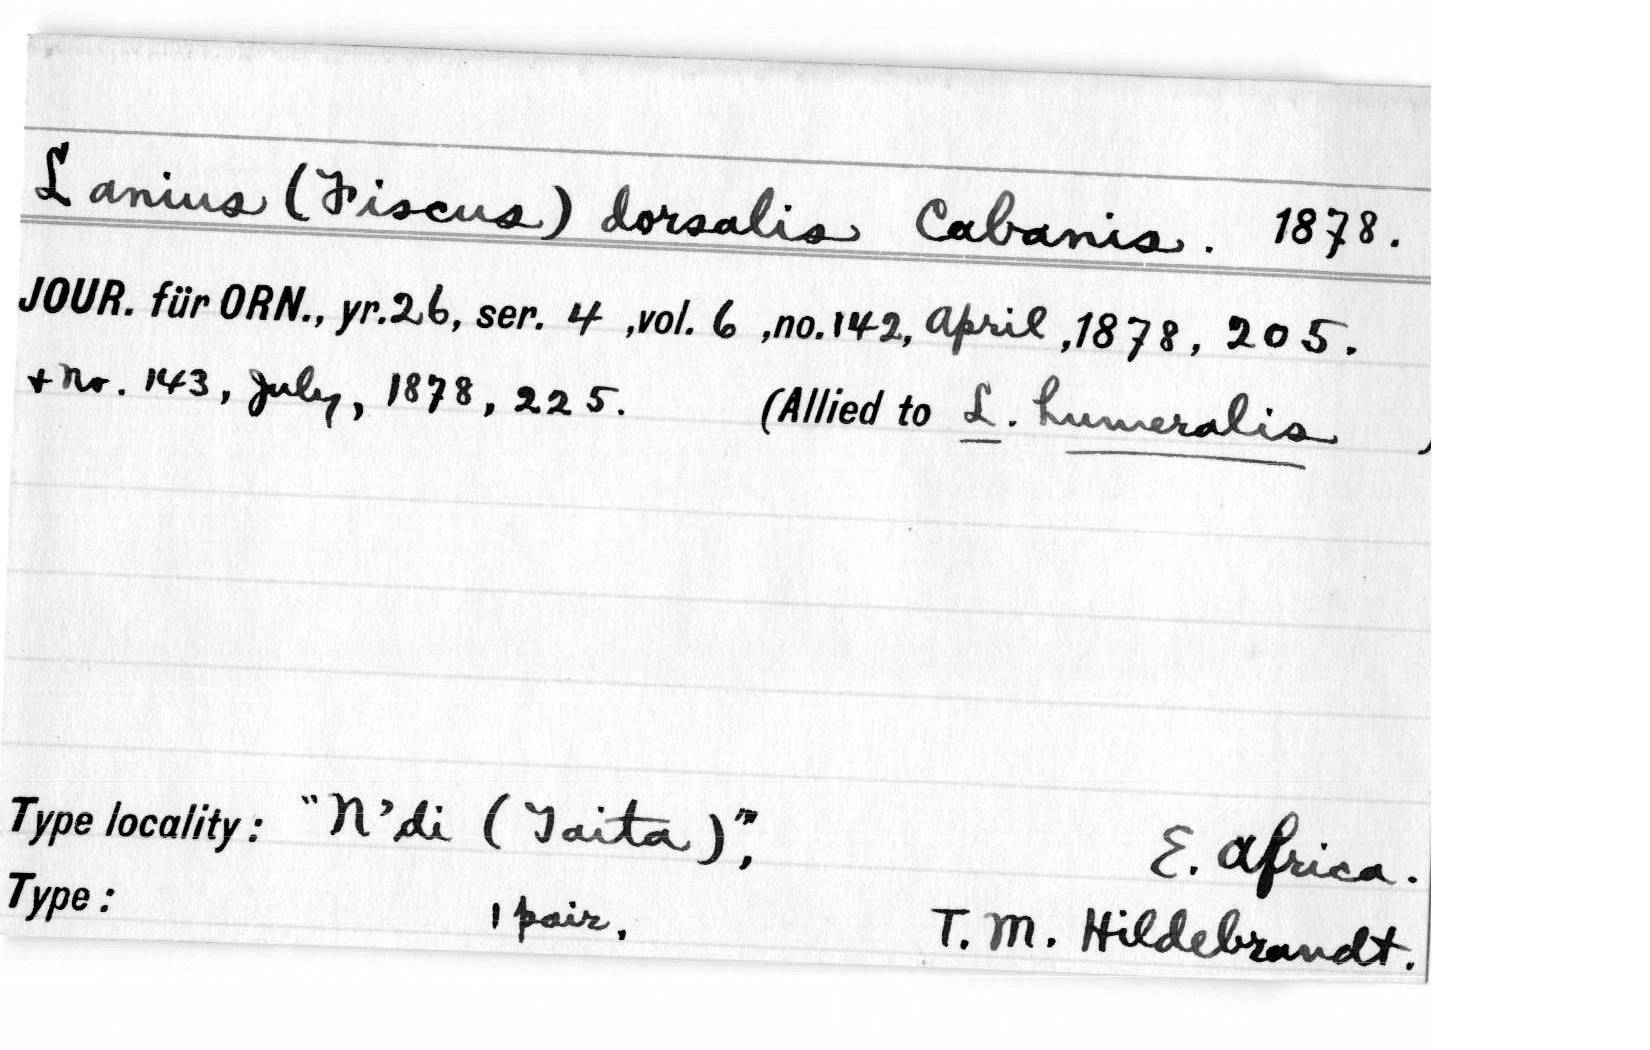 Lanius (Fiscus) dorsalis Cabanis. 1878.
JOUR. für ORN., yr.26, ser. 4 ,vol. 6 ,no.142, April ,1878, 205.
+ No. 143, July, 1878, 225. (Allied to L. humeralis )
Type locality: "N'di (Taita)", E. Africa.
Type: 1 pair. T. M. Hildebrandt.